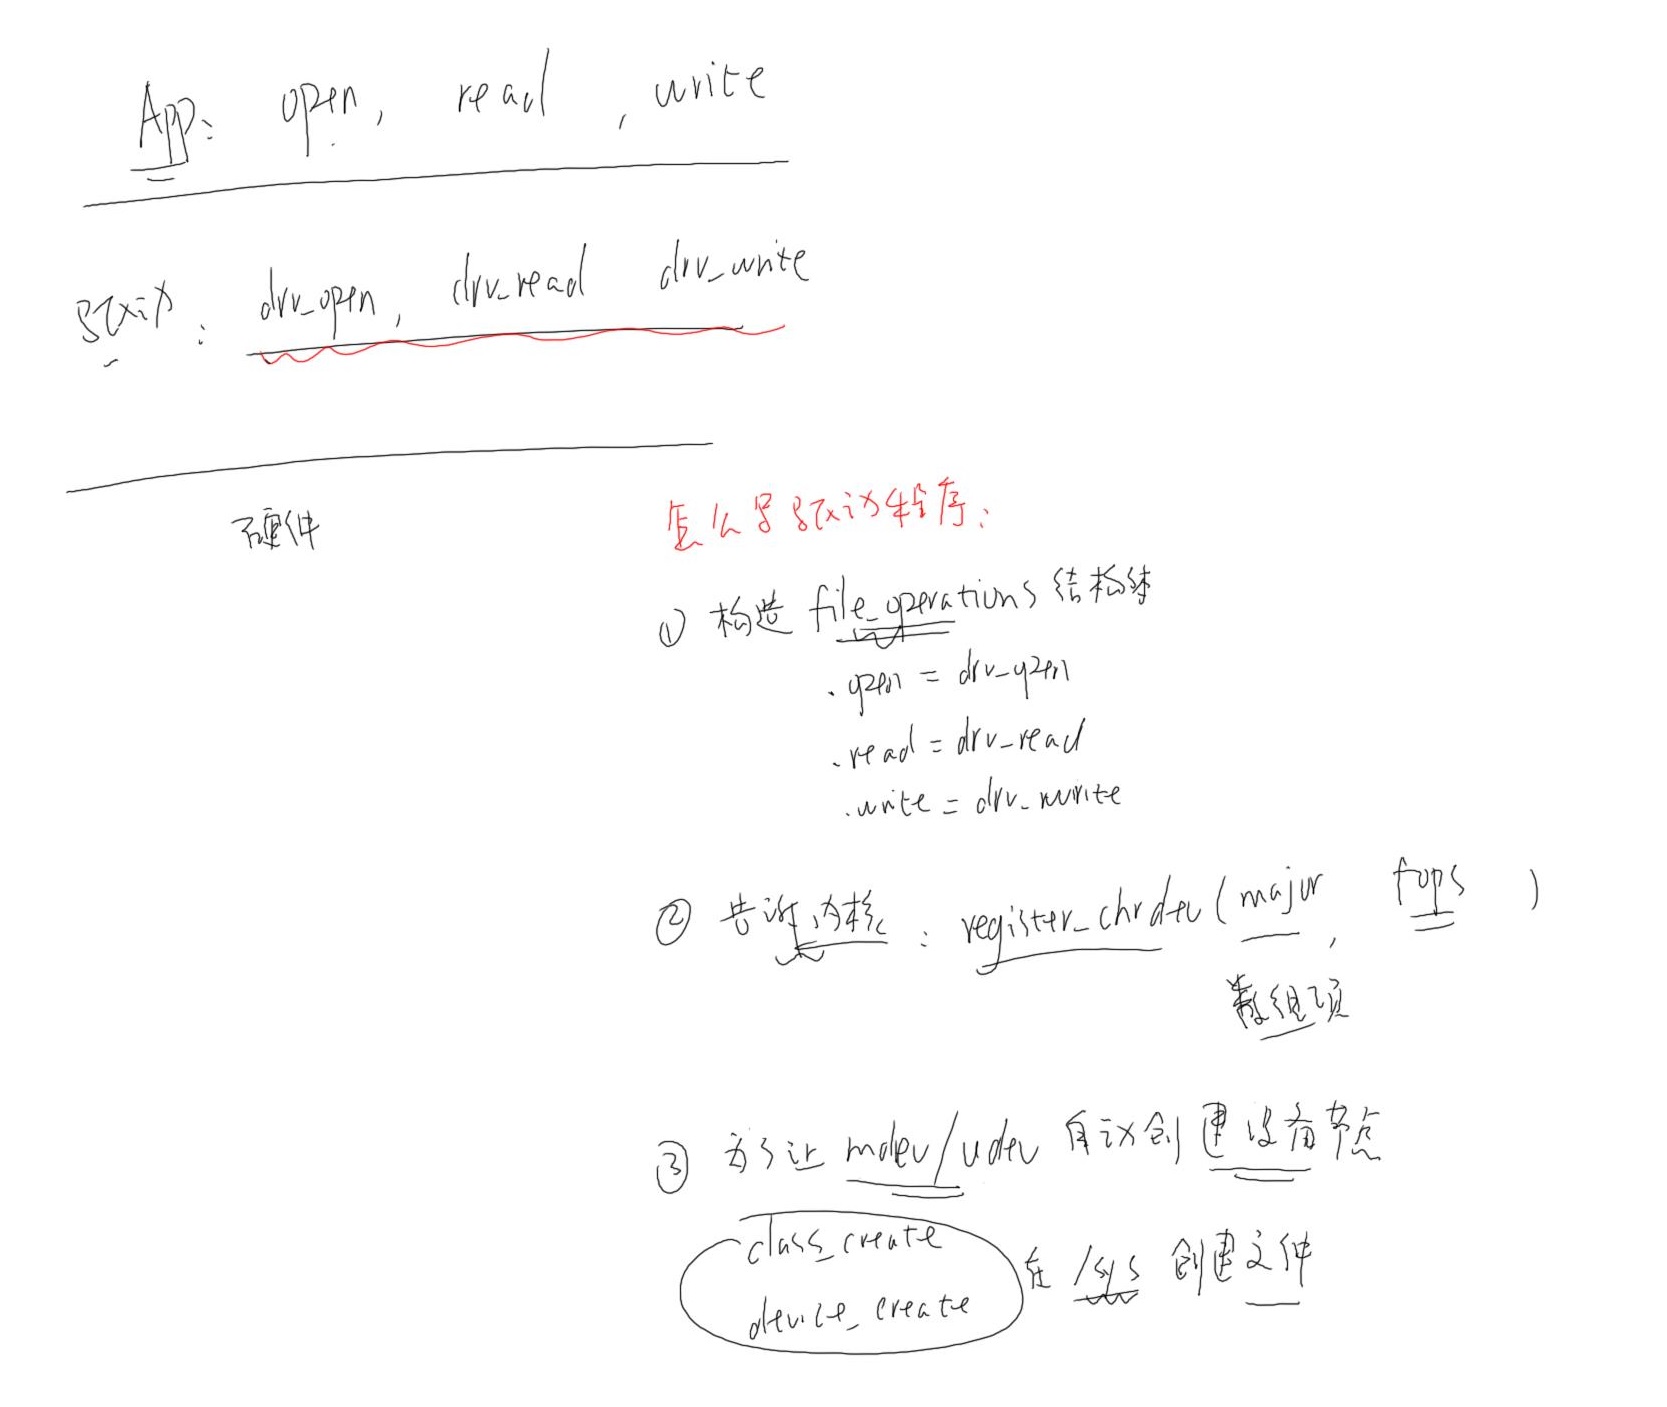 App: open, read, write
驱动: drv_open, drv_read drv_write
硬件
怎么写驱动程序:
① 构造 file_operations 结构体
.open = drv_open
.read = drv_read
.write = drv_write
② 告诉内核: register_chrdev(major, fops)
数组项
③ 为了让 mdev/udev 自动创建设备节点
class_create
device_create
在 /sys 创建文件